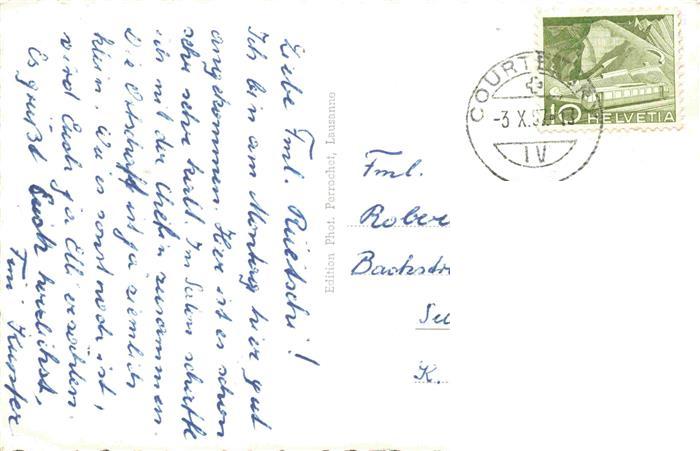 Liebe Fml. Rüetschi!
Ich bin am Montag hier gut
angekommen. Hier ist es schon
sehr sehr kalt. Im Salon
ich mit der Chefin zusammen.
Die Ortschaft ist ja ziemlich
klein. Wie es sonst noch ist,
wird Euch ja Elli erzählen.
Es grüßt Euch herzlichst,
Edition Phot. Perrochet, Lausanne
COURTE
-3.X.5
IV
10 HELVETIA
Fml.
Rober
Backstr
K.